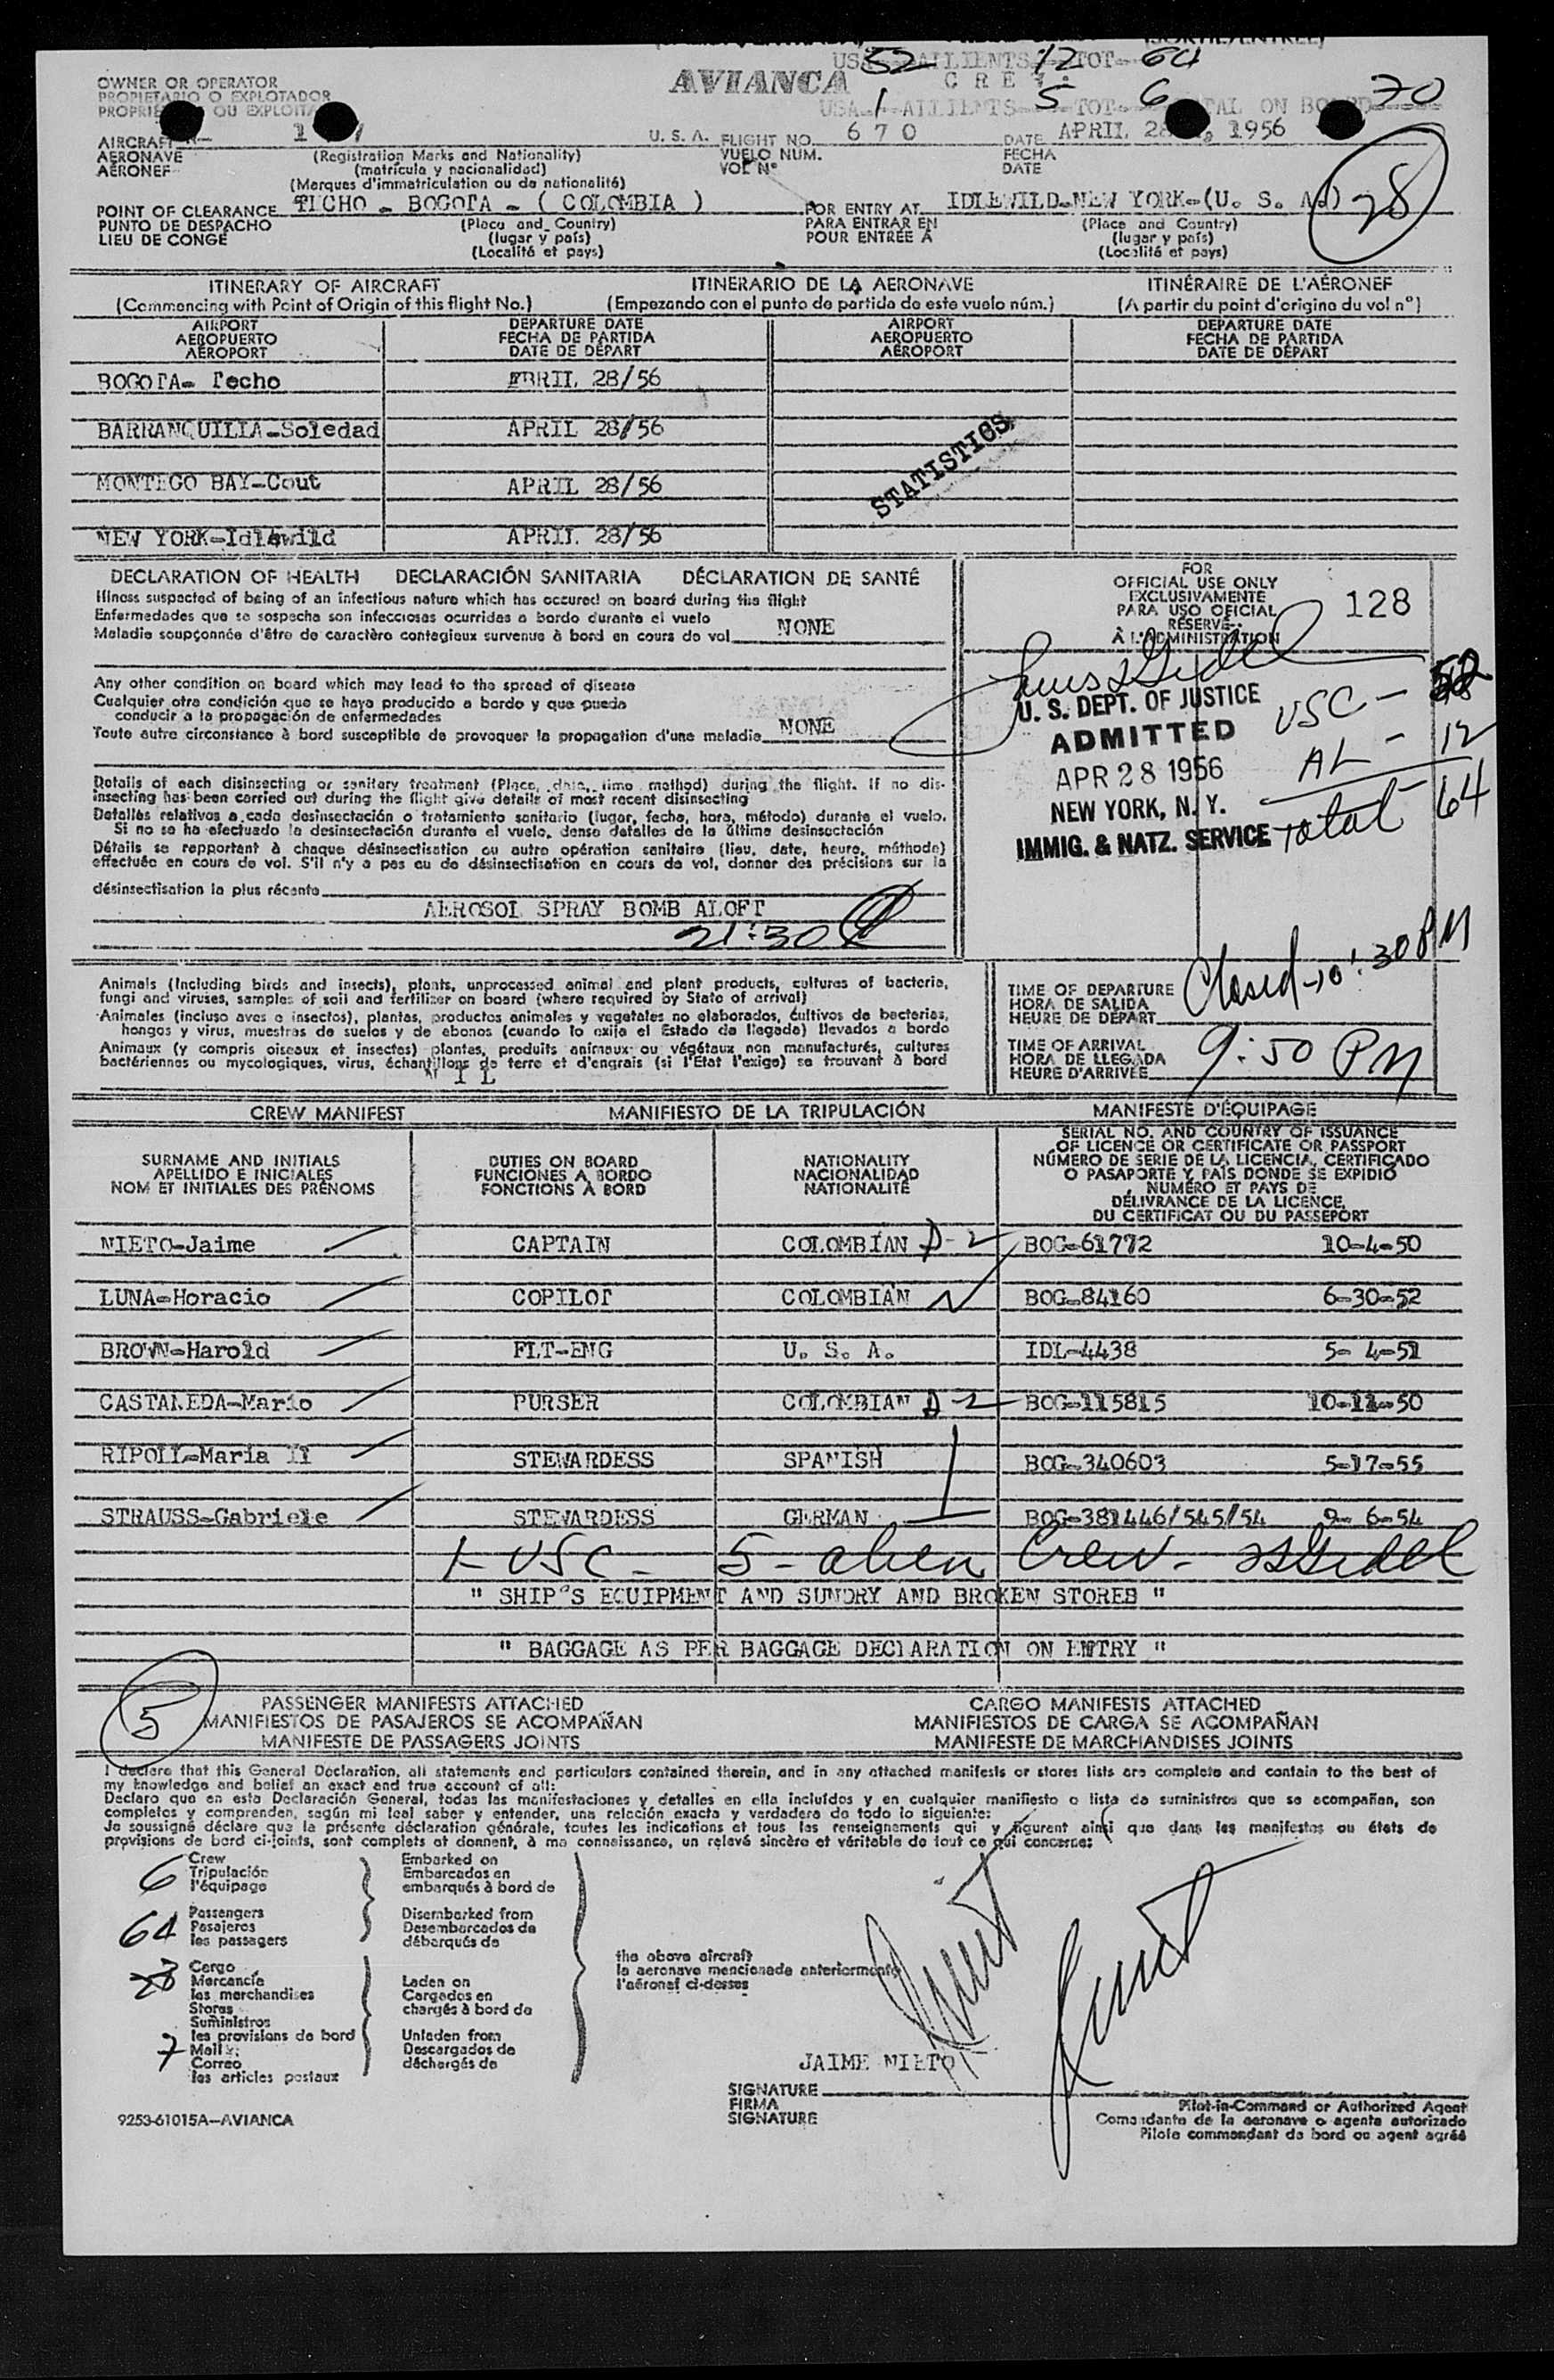 USA 52 ALLIENTS 12 TOT- 64
AVIANCA CREW:
USA- 1 ALLIENTS- 5 TOT- 6 TOTAL ON BOARD 70
OWNER OR OPERATOR
PROPIETARIO O EXPLOTADOR
OU
AIRCRAFT
AERONAVE
AÉRONEF
(Registration Marks and Nationality)
(matrícula y nacionalidad)
(Marques d'immatriculation ou de nationalité)
U. S. A. FLIGHT NO. 670
VUELO NUM.
VOL Nº
DATE APRIL 28, 1956
FECHA
DATE
28
POINT OF CLEARANCE TECHO - BOGOTA - ( COLOMBIA )
PUNTO DE DESPACHO
LIEU DE CONGÉ
(Place and Country)
(lugar y país)
(Localité et pays)
FOR ENTRY AT IDLEWILD-NEW YORK-(U. S. A.)
PARA ENTRAR EN
POUR ENTRÉE À
(Place and Country)
(lugar y país)
(Localité et pays)
ITINERARY OF AIRCRAFT ITINERARIO DE LA AERONAVE ITINÉRAIRE DE L'AÉRONEF
(Commencing with Point of Origin of this flight No.) (Empezando con el punto de partida de este vuelo núm.) (A partir du point d'origine du vol nº)
AIRPORT DEPARTURE DATE AIRPORT DEPARTURE DATE
AEROPUERTO FECHA DE PARTIDA AEROPUERTO FECHA DE PARTIDA
AÉROPORT DATE DE DÉPART AÉROPORT DATE DE DÉPART
BOGOTA- Techo EBRIL 28/56
BARRANQUILLA-Soledad APRIL 28/56
MONTEGO BAY-Cout APRIL 28/56
NEW YORK-Idlewild APRIL 28/56
STATISTICS
DECLARATION OF HEALTH DECLARACIÓN SANITARIA DÉCLARATION DE SANTÉ
Illness suspected of being of an infectious nature which has occured on board during the flight
Enfermedades que se sospecha son infecciosas ocurridas a bordo durante el vuelo
Maladie soupçonnée d'être de caractère contagieux survenue à bord en cours de vol NONE
Any other condition on board which may lead to the spread of disease
Cualquier otra condición que se haya producido a bordo y que pueda
conducir a la propagación de enfermedades
Toute autre circonstance à bord susceptible de provoquer la propagation d'une maladie NONE
Details of each disinsecting or sanitary treatment (Place, date, time method) during the flight. If no dis-
insecting has been carried out during the flight give details of most recent disinsecting
Detalles relativos a cada desinsectación o tratamiento sanitario (lugar, fecha, hora, método) durante el vuelo.
Si no se ha efectuado la desinsectación durante el vuelo, dense detalles de la última desinsectación
Détails se rapportant à chaque désinsectisation ou autre opération sanitaire (lieu, date, heure, méthode)
effectuée en cours de vol. S'il n'y a pas eu de désinsectisation en cours de vol, donner des précisions sur la
désinsectisation la plus récente
AEROSOL SPRAY BOMB ALOFT
21:30
FOR
OFFICIAL USE ONLY
EXCLUSIVAMENTE
PARA USO OFICIAL
RÉSERVÉ
À L'ADMINISTRATION
128
U. S. DEPT. OF JUSTICE
ADMITTED
APR 28 1956
NEW YORK, N. Y.
IMMIG. & NATZ. SERVICE
USC - 52
AL - 12
Total 64
Animals (Including birds and insects), plants, unprocessed animal and plant products, cultures of bacteria,
fungi and viruses, samples of soil and fertilizer on board (where required by State of arrival)
Animales (incluso aves e insectos), plantas, productos animales y vegetales no elaborados, cultivos de bacterias,
hongos y virus, muestras de suelos y de abonos (cuando lo exija el Estado de llegada) llevados a bordo
Animaux (y compris oiseaux et insectes) plantes, produits animaux ou végétaux non manufacturés, cultures
bactériennes ou mycologiques, virus, échantillons de terre et d'engrais (si l'État l'exige) se trouvant à bord
N I L
TIME OF DEPARTURE
HORA DE SALIDA
HEURE DE DÉPART
Closed-10:30 PM
TIME OF ARRIVAL
HORA DE LLEGADA
HEURE D'ARRIVÉE
9:50 PM
CREW MANIFEST MANIFIESTO DE LA TRIPULACIÓN MANIFESTE D'ÉQUIPAGE
SURNAME AND INITIALS
APELLIDO E INICIALES
NOM ET INITIALES DES PRÉNOMS
DUTIES ON BOARD
FUNCIONES A BORDO
FONCTIONS À BORD
NATIONALITY
NACIONALIDAD
NATIONALITÉ
SERIAL NO. AND COUNTRY OF ISSUANCE
OF LICENCE OR CERTIFICATE OR PASSPORT
NÚMERO DE SERIE DE LA LICENCIA, CERTIFICADO
O PASAPORTE Y PAÍS DONDE SE EXPIDIÓ
NUMÉRO ET PAYS DE
DÉLIVRANCE DE LA LICENCE,
DU CERTIFICAT OU DU PASSEPORT
NIETO-Jaime CAPTAIN COLOMBIAN D-2 BOG-61772 10-4-50
LUNA-Horacio COPILOT COLOMBIAN BOG-84160 6-30-52
BROWN-Harold FLT-ENG U. S. A. IDL-4438 5- 4-51
CASTANEDA-Mario PURSER COLOMBIAN D-2 BOG-115815 10-11-50
RIPOLL-Maria II STEWARDESS SPANISH BOG-340603 5-17-55
STRAUSS-Gabriele STEWARDESS GERMAN BOG-381446/545/54 9- 6-54
1-USC- 5-alien Crew-
" SHIP'S EQUIPMENT AND SUNDRY AND BROKEN STORES "
" BAGGAGE AS PER BAGGAGE DECLARATION ON ENTRY "
5
PASSENGER MANIFESTS ATTACHED CARGO MANIFESTS ATTACHED
MANIFIESTOS DE PASAJEROS SE ACOMPAÑAN MANIFIESTOS DE CARGA SE ACOMPAÑAN
MANIFESTE DE PASSAGERS JOINTS MANIFESTE DE MARCHANDISES JOINTS
I declare that this General Declaration, all statements and particulars contained therein, and in any attached manifests or stores lists are complete and contain to the best of
my knowledge and belief an exact and true account of all:
Declaro que en esta Declaración General, todas las manifestaciones y detalles en ella incluídos y en cualquier manifiesto o lista de suministros que se acompañan, son
completos y comprenden, según mi leal saber y entender, una relación exacta y verdadera de todo lo siguiente:
Je soussigné déclare que la présente déclaration générale, toutes les indications et tous les renseignements qui y figurent ainsi que dans les manifestes ou états de
provisions de bord ci-joints, sont complets et donnent, à ma connaissance, un relevé sincère et véritable de tout ce qui concerne:
6 Crew
Tripulación
l'équipage
64 Passengers
Pasajeros
les passagers
Cargo
Mercancía
les marchandises
Stores
Suministros
les provisions de bord
7 Mail
Correo
les articles postaux
Embarked on
Embarcados en
embarqués à bord de
Disembarked from
Desembarcados de
débarqués de
Laden on
Cargados en
chargés à bord de
Unladen from
Descargados de
déchargés de
the above aircraft
la aeronave mencionada anteriormente
l'aéronef ci-dessus
JAIME NIETO
SIGNATURE
FIRMA
SIGNATURE
Pilot-in-Command or Authorized Agent
Comandante de la aeronave o agente autorizado
Pilote commandant de bord ou agent agréé
9253-61015A-AVIANCA